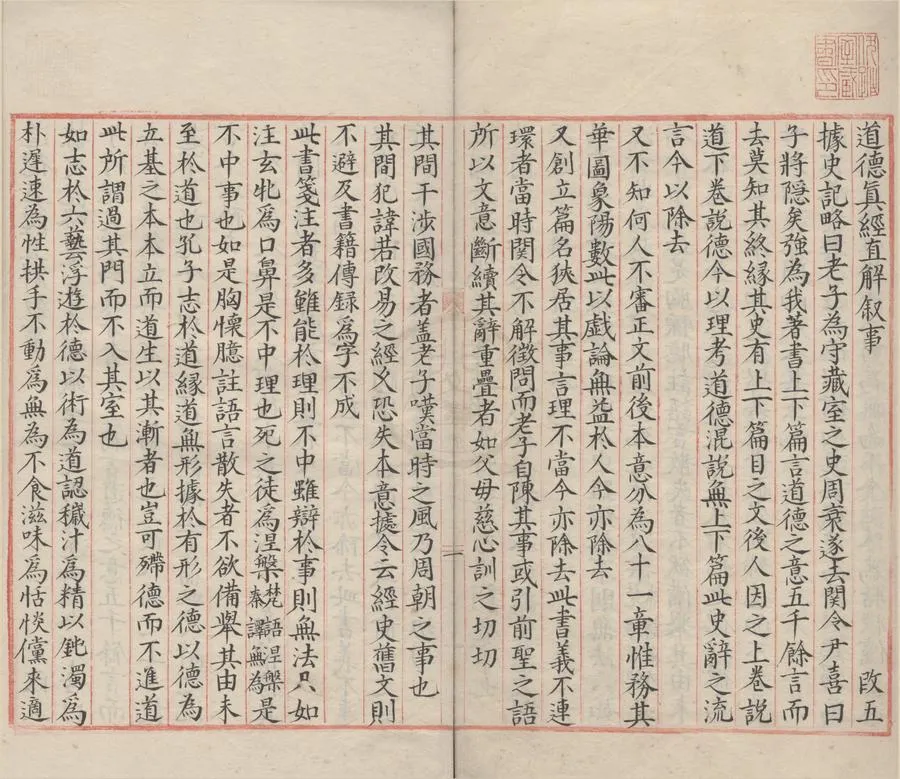 道德真經直解叙事 改五
據史記略曰老子為守藏室之史周衰遂去関令尹喜曰
子將隱矣強為我著書上下篇言道德之意五千餘言而
去莫知其終緣其史有上下篇目之文後人因之上卷說
道下卷説德今以理考道德混説無上下篇此史辭之流
言今以除去
又不知何人不審正文前後本意分為八十一章惟務其
華圖象陽數此以戲論無益於人今亦除去
又創立篇名狹居其事言理不當今亦除去此書義不連
環者當時関令不解徵問而老子自陳其事或引前聖之語
所以文意斷續其辭重疊者如父母慈心訓之切切
其間干涉國務者盖老子嘆當時之風乃周朝之事也
其間犯諱若改易之經文恐失本意據令云經史舊文則
不避及書籍傳録為字不成
此書箋注者多雖能於理則不中雖辯於事則無法只如
注玄牝為口鼻是不中理也死之徒為涅槃梵語涅槃秦譯無為是
不中事也如是胸懷臆註語言散失者不欲備舉其由未
至於道也孔子志於道緣道無形據於有形之德以德為
立基之本本立而道生以其漸者也豈可殢德而不進道
此所謂過其門而不入其室也
如志於六藝浮遊於德以術為道認穢汁為精以鈍濁為
朴遲速為性拱手不動為無為不食滋味為恬惔儻來適